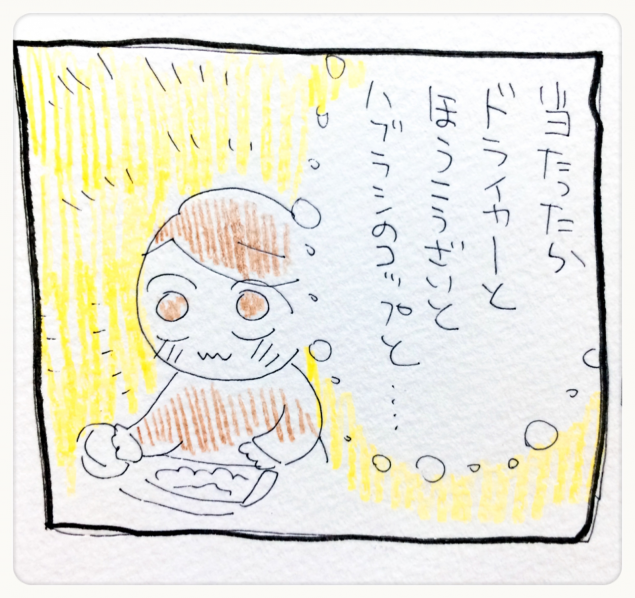 当たったら
ドライヤーと
ほうこうざいと
ハブラシのコップと……